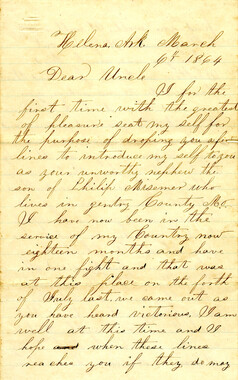 Helena, Ark March
6th 1864
Dear Uncle
I for the
first time with the greatest
of pleasure seat my self for
the purpose of droping you a few
lines to introduce my self to you
as your unworthy nephew the
son of Philip Misemer who
lives in gentry County Mo.
I have now been in the
servise of my Country now
eighteen months and have
in one fight and that was
at this place on the forth
of July last, we came out as
you have heard victorious. I am
well at this time and I
hope when these lines
reaches you if they do may